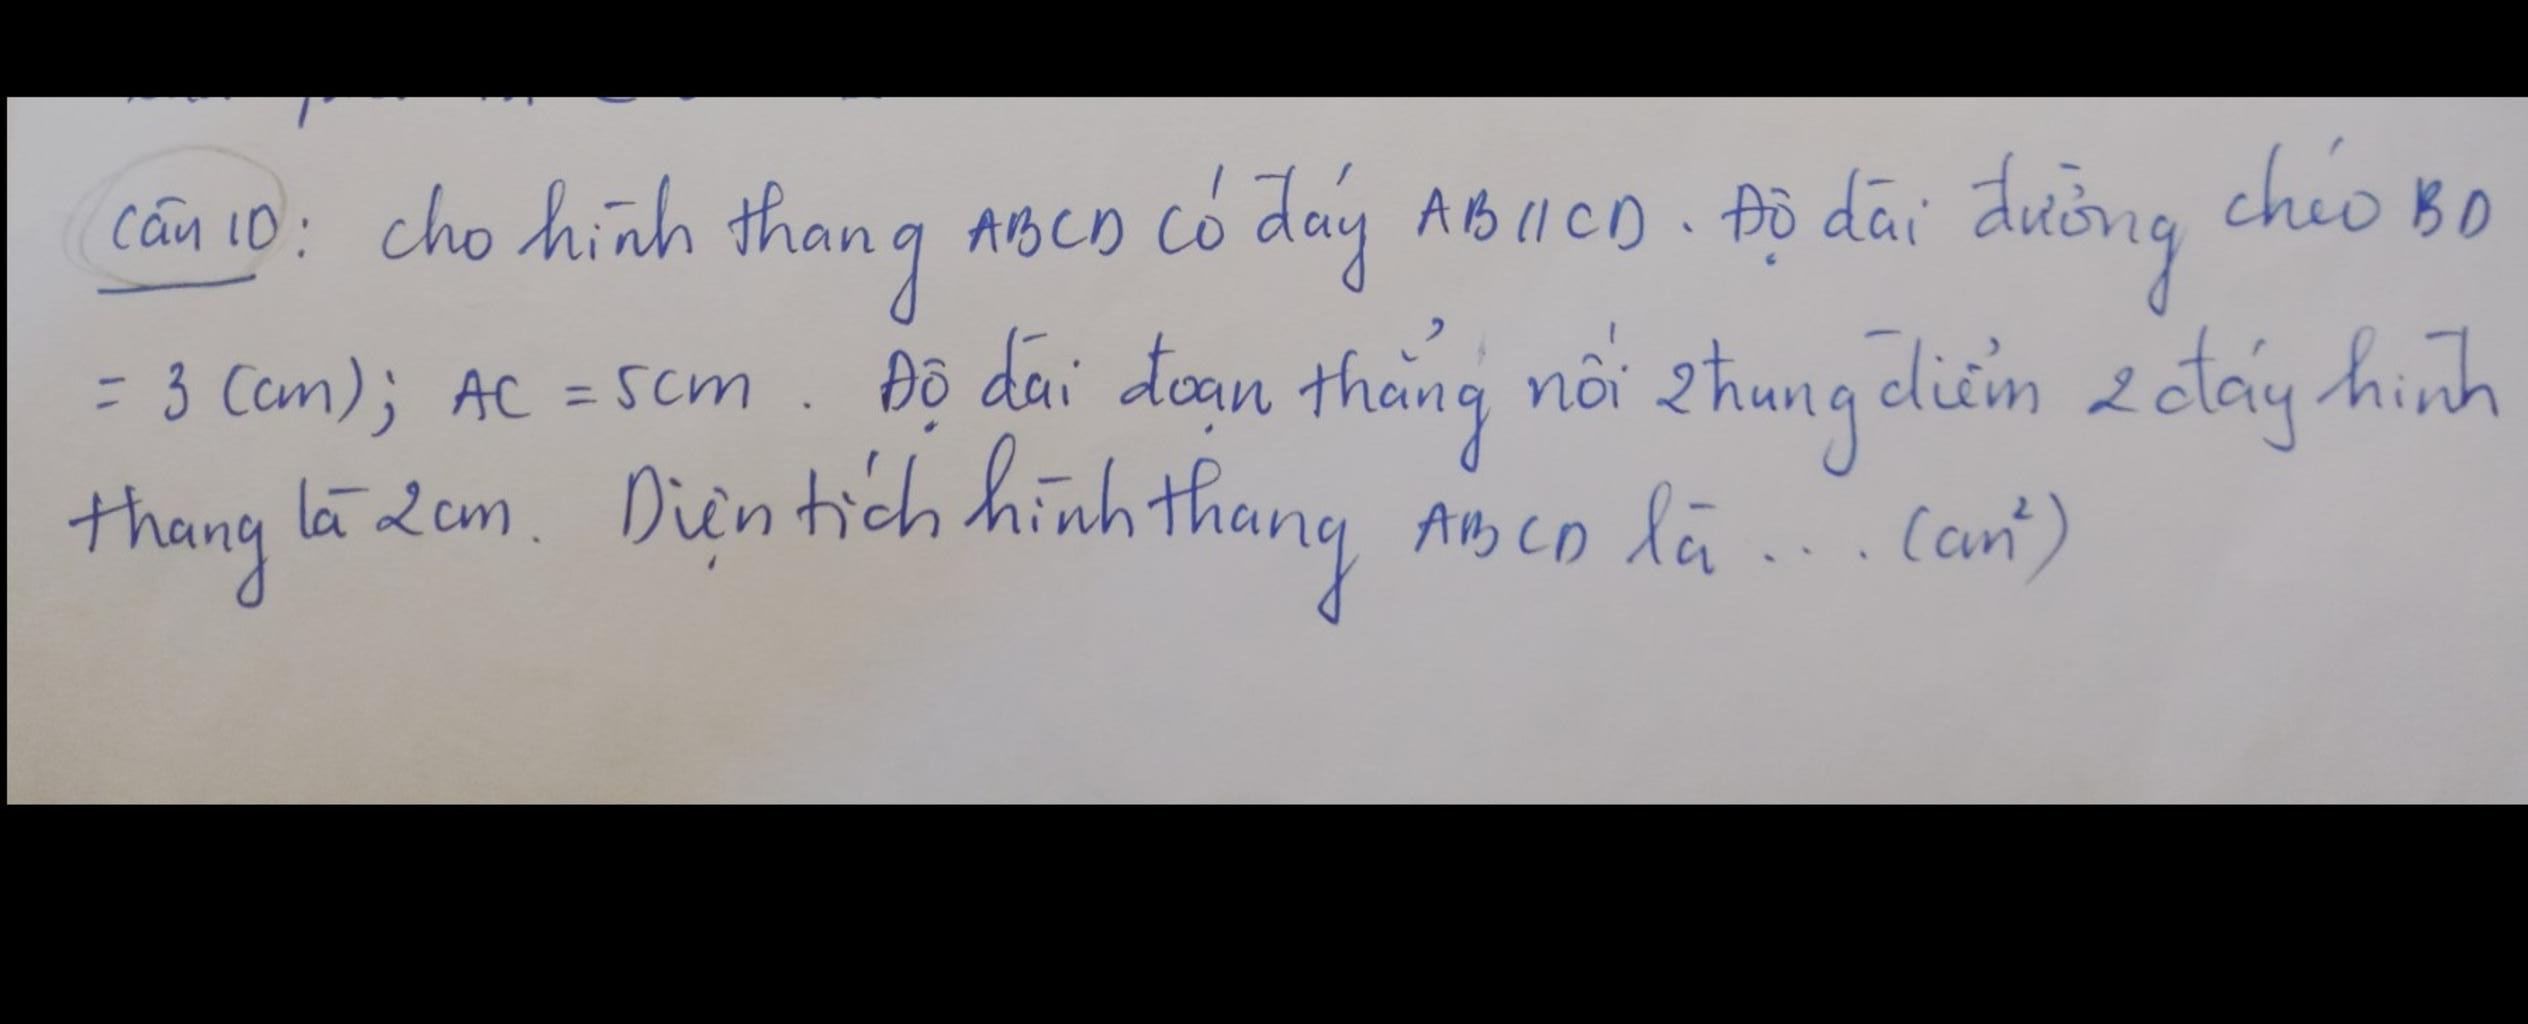 Câu 10: cho hình thang ABCD có đáy AB//CD. Độ dài đường chéo BD
= 3 (cm); AC = 5cm. Độ dài đoạn thẳng nối 2 trung điểm 2 đáy hình
thang là 2cm. Diện tích hình thang ABCD là ... (cm²)